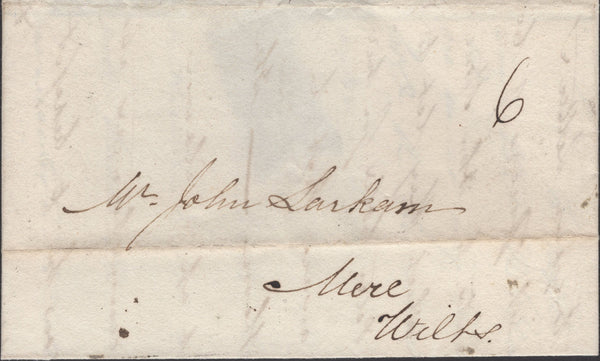 6
Mr. John Larkam
Mere
Wilts.